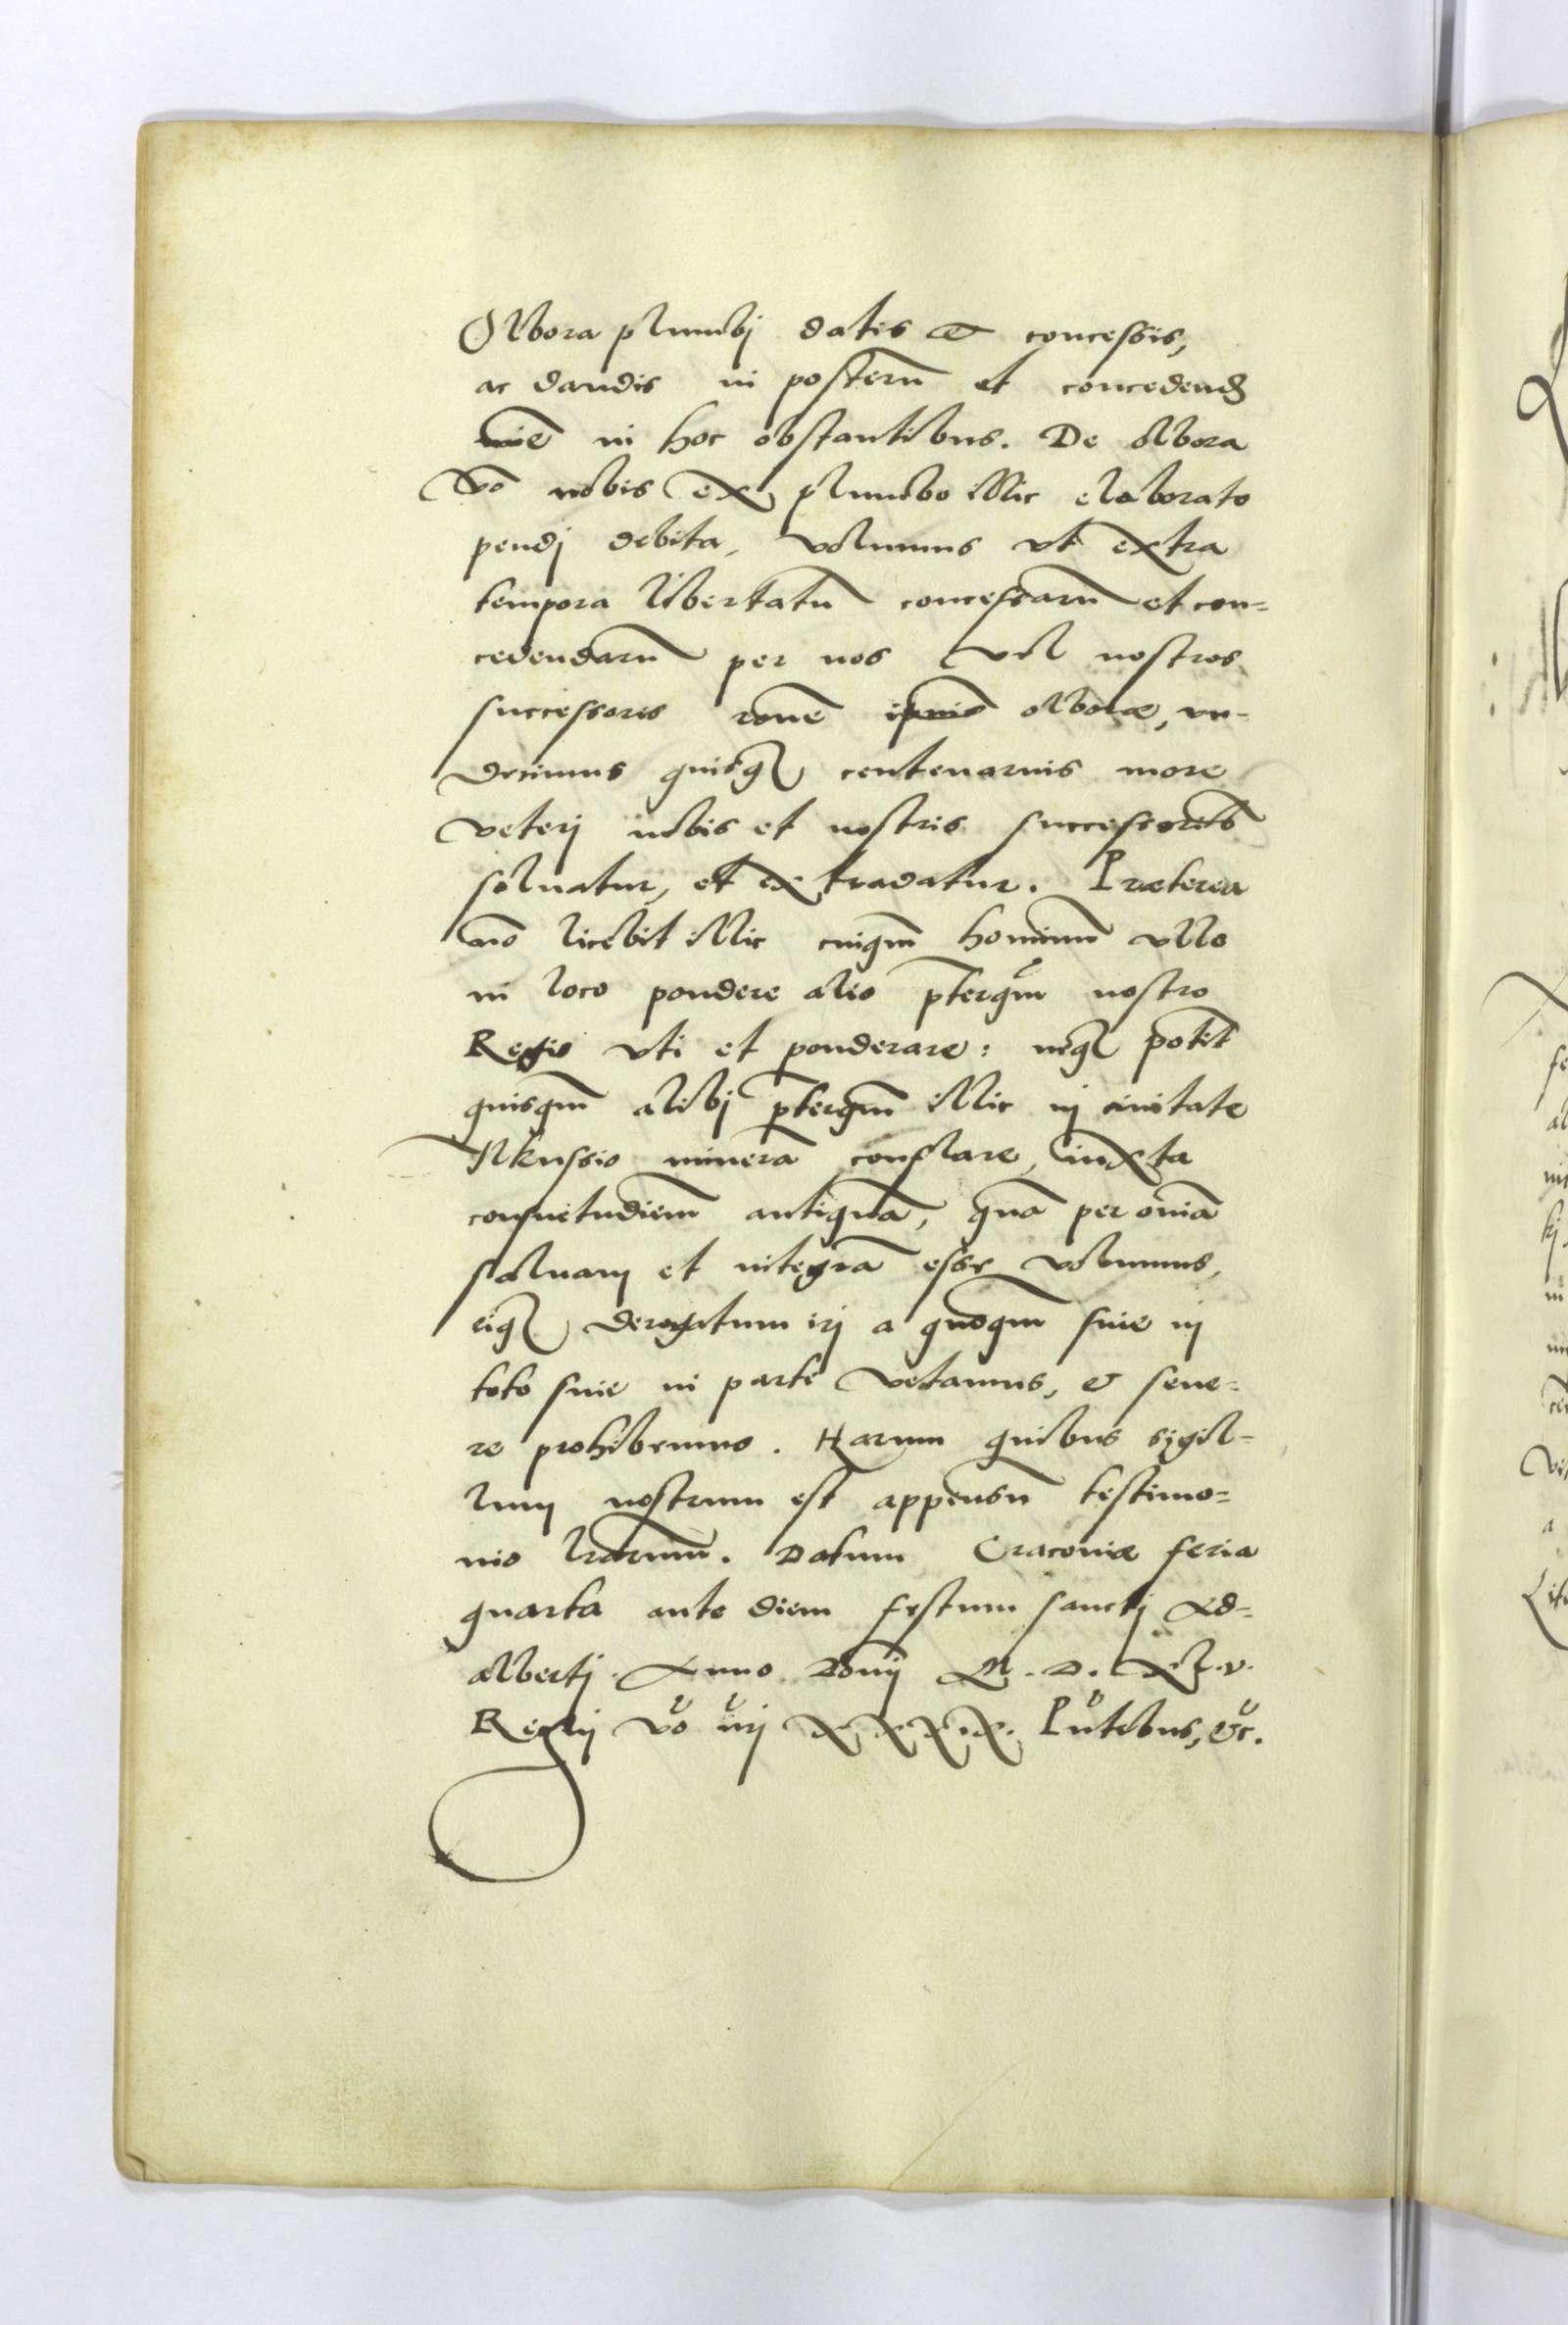 Olbora plumbj datis et concessis,
ac dandis in posterū et concedend
in hoc obstantibus. De olbora
vō nobis ex plumbo illic elaborato
pendj debita, volumus vt extra
tempora libertatū concessarū et con=
cedendarū per nos vel nostros
successores rōne ipsius olboræ, vn-
decimus quisq3 centenarius more
veterj nobis et nostris successorib
soluatur, et extradatur. Præterea
nō licebit illic cuiqm̄ hominum vllo
in loco pondere alio p̄terqm nostro
Regio vti et ponderare: neq3 potit
quisqm̄ alibj p̄terqm̄ illic in ciuitate
Ilkussio minerā conflare, iuxta
consuetudiem̄ antiquā, quā per omīa
saluam et integrā esse volumus,
eiq3 derogatum irj a quoqm̄ siue in
toto siue in parte vetamus, & seue=
re prohibemus. Harum quibus sigil=
lum nostrum est appensū testimo=
nio lrarum̄. Datum Cracouiæ feria
quarta ante diem festum sanctj Ad=
albertj. Anno Domj M. D. XL. v.
Regnj vo nrj XXXIX. Pntibus, &c.